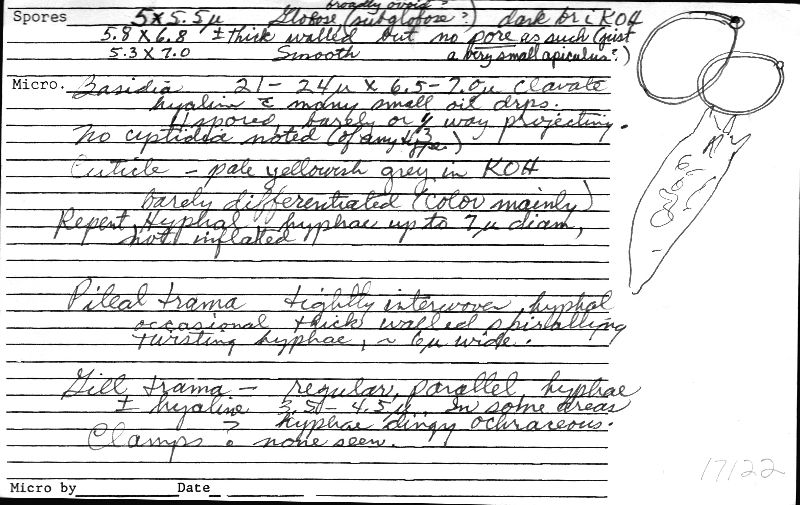 broadly ovoid?
Spores 5 x 5.5µ Globose (subglobose?) dark br i KOH
5.8 x 6.8 ± thick walled but no pore as such (just
5.3 x 7.0 Smooth a very small apiculus?)
Micro. Basidia 21 - 24µ x 6.5 - 7.0µ clavate
hyaline c̄ many small oil drps.
4 spored barely or ½ way projecting.
No cystidia noted (of any type.)
Cuticle - pale yellowish grey in KOH
barely differentiated (color mainly)
Repent, Hyphal - hyphae up to 7µ diam,
not inflated
Pileal trama tightly interwoven, hyphal
occasional thick walled spiralling
twisting hyphae, ~ 6µ wide.
Gill trama - regular, parallel hyphae
± hyaline 3.5 - 4.5µ. In some areas
? hyphae dingy ochraceous.
Clamps? none seen.
17122
Micro by Date